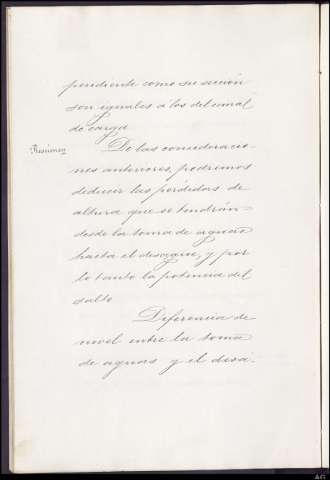 pendiente como su sección
son iguales á los del canal
de carga
Resumen
De las consideracio-
nes anteriores, podremos
deducir las pérdidas de
altura que se tendrán
desde la toma de aguas
hasta el desagüe, y por
lo tanto la potencia del
salto
Diferencia de
nivel entre la toma
de aguas y el desa-
AG